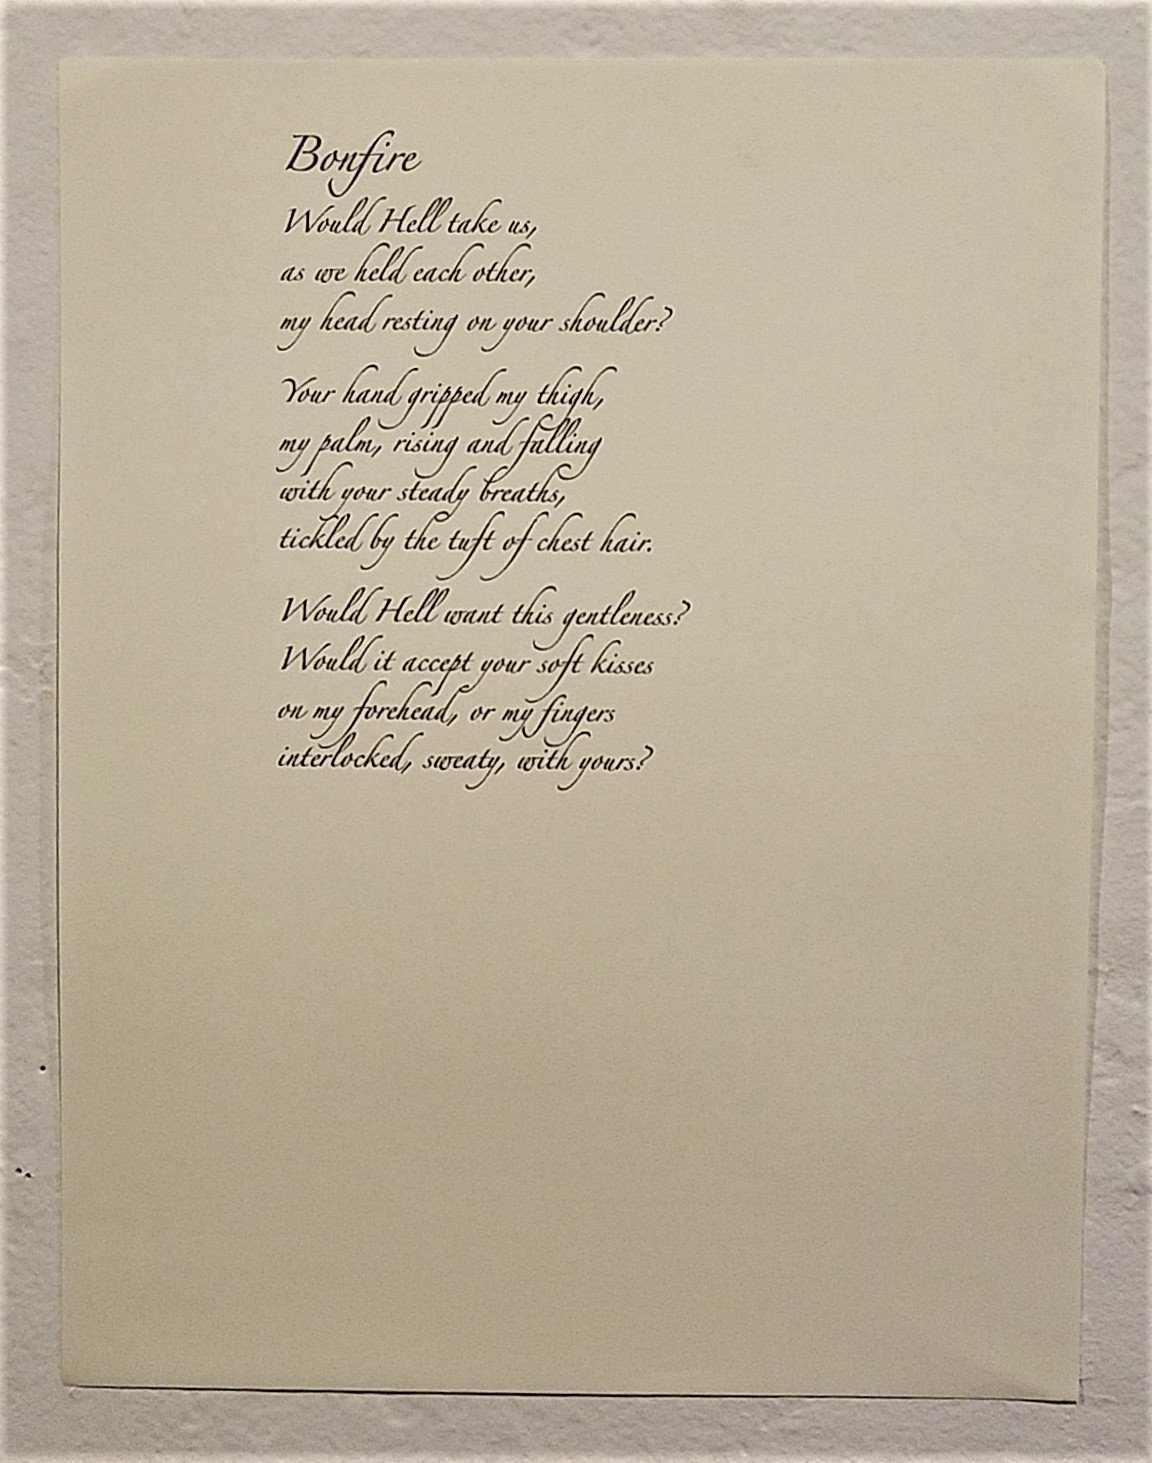 Bonfire
Would Hell take us,
as we held each other,
my head resting on your shoulder?
Your hand gripped my thigh,
my palm, rising and falling
with your steady breaths,
tickled by the tuft of chest hair.
Would Hell want this gentleness?
Would it accept your soft kisses
on my forehead, or my fingers
interlocked, sweaty, with yours?